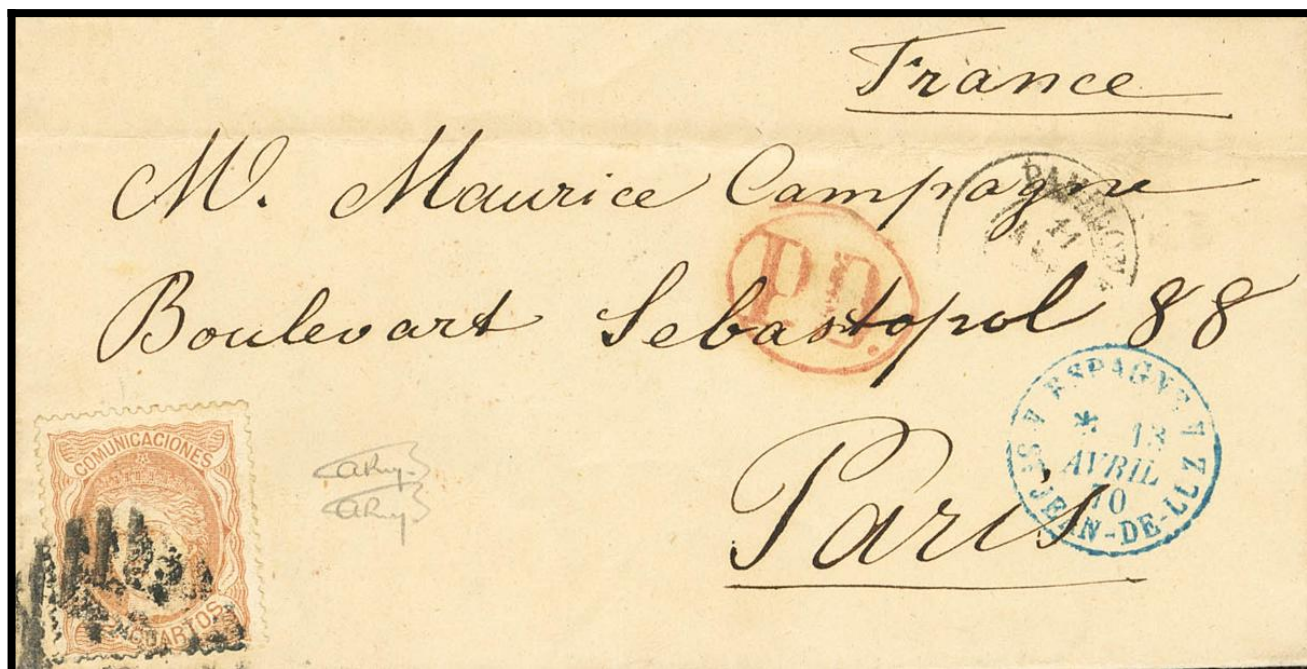 France
M. Maurice Campagne
PAMPLONA
11
P.D.
Boulevart Sebastopol 88
ESPAGNE
* 13
AVRIL
70
ST JEAN-DE-LUZ
Paris
COMUNICACIONES
CUARTOS